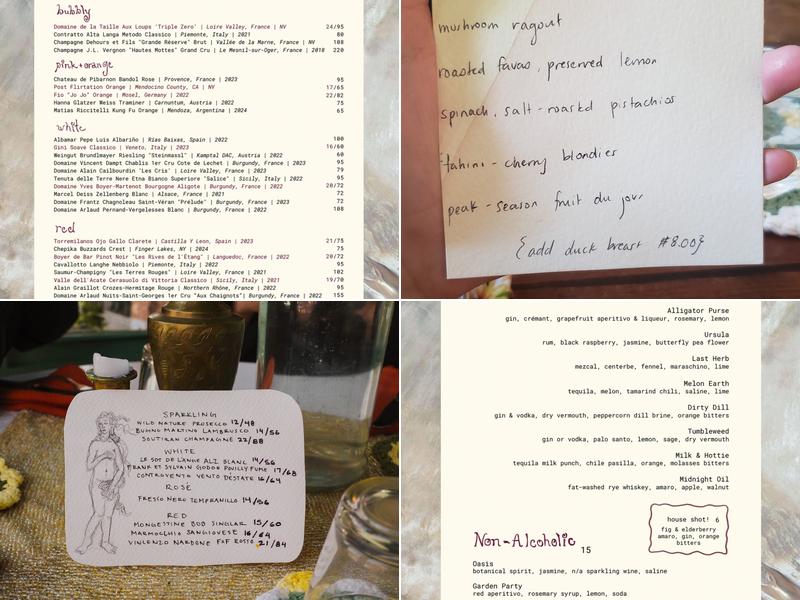 bubbly
Domaine de la Taille Aux Loups 'Triple Zero' | Loire Valley, France | NV 24/95
Contratto Alta Langa Metodo Classico | Piemonte, Italy | 2021 80
Champagne Dehours et Fils "Grande Réserve" Brut | Vallée de la Marne, France | NV 108
Champagne J.L. Vergnon "Hautes Mottes" Grand Cru | Le Mesnil-sur-Oger, France | 2018 220
pink+orange
Chateau de Pibarnon Bandol Rose | Provence, France | 2023 95
Post Flirtation Orange | Mendocino County, CA | NV 17/65
Fio "Jo Jo" Orange | Mosel, Germany | 2022 22/82
Hanna Glatzer Weiss Traminer | Carnuntum, Austria | 2022 75
Matias Riccitelli Kung Fu Orange | Mendoza, Argentina | 2024 65
white
Albamar Pepe Luis Albariño | Rías Baixas, Spain | 2022 100
Gini Soave Classico | Veneto, Italy | 2023 16/60
Weingut Brundlmayer Riesling "Steinmassl" | Kamptal DAC, Austria | 2022 60
Domaine Vincent Dampt Chablis 1er Cru Cote de Lechet | Burgundy, France | 2023 95
Domaine Alain Cailbourdin "Les Cris" | Loire Valley, France | 2023 79
Tenuta delle Terre Nere Etna Bianco Superiore "Salice" | Sicily, Italy | 2022 95
Domaine Yves Boyer-Martenot Bourgogne Aligote | Burgundy, France | 2022 20/72
Marcel Deiss Zellenberg Blanc | Alsace, France | 2021 72
Domaine Frantz Chagnoleau Saint-Véran "Prélude" | Burgundy, France | 2023 72
Domaine Arlaud Pernand-Vergelesses Blanc | Burgundy, France | 2022 108
red
Torremilanos Ojo Gallo Clarete | Castilla Y Leon, Spain | 2023 21/75
Chepika Buzzards Crest | Finger Lakes, NY | 2024 75
Boyer de Bar Pinot Noir "Les Rives de l'Étang" | Languedoc, France | 2022 20/72
Cavallotto Langhe Nebbiolo | Piemonte, Italy | 2022 95
Saumur-Champigny "Les Terres Rouges" | Loire Valley, France | 2021 102
Valle dell'Acate Cerasuolo di Vittoria Classico | Sicily, Italy | 2021 19/70
Alain Graillot Crozes-Hermitage Rouge | Northern Rhône, France | 2022 95
Domaine Arlaud Nuits-Saint-Georges 1er Cru "Aux Chaignots"| Burgundy, France | 2022 155
mushroom ragout
roasted favas, preserved lemon
spinach, salt-roasted pistachios
tahini-cherry blondies
peak-season fruit du jour
{add duck breast $8.00}
SPARKLING
WILD NATURE PROSECCO 12/48
BUONO MARTINO LAMBRUSCO 14/56
SOUTIRAN CHAMPAGNE 22/88
WHITE
LE SOT DE L'ANGE ALI BLANC 14/56
FRANK ET SYLVAIN GODON POUILLY FUME 17/68
CONTROVENTO VENTO DESTATE 16/64
ROSÉ
FRESCO NERO TEMPRANILLO 14/56
RED
MONGESTINE BOB SINGLAR 15/60
MARMOCCHIO SANGIOVESE 16/64
VINCENZO NARDONE F&F ROSSO 21/84
Alligator Purse
gin, crémant, grapefruit aperitivo & liqueur, rosemary, lemon
Ursula
rum, black raspberry, jasmine, butterfly pea flower
Last Herb
mezcal, centerbe, fennel, maraschino, lime
Melon Earth
tequila, melon, tamarind chili, saline, lime
Dirty Dill
gin & vodka, dry vermouth, peppercorn dill brine, orange bitters
Tumbleweed
gin or vodka, palo santo, lemon, sage, dry vermouth
Milk & Hottie
tequila milk punch, chile pasilla, orange, molasses bitters
Midnight Oil
fat-washed rye whiskey, amaro, apple, walnut
house shot! 6
fig & elderberry
amaro, gin, orange
bitters
Non-Alcoholic 15
Oasis
botanical spirit, jasmine, n/a sparkling wine, saline
Garden Party
red aperitivo, rosemary syrup, lemon, soda